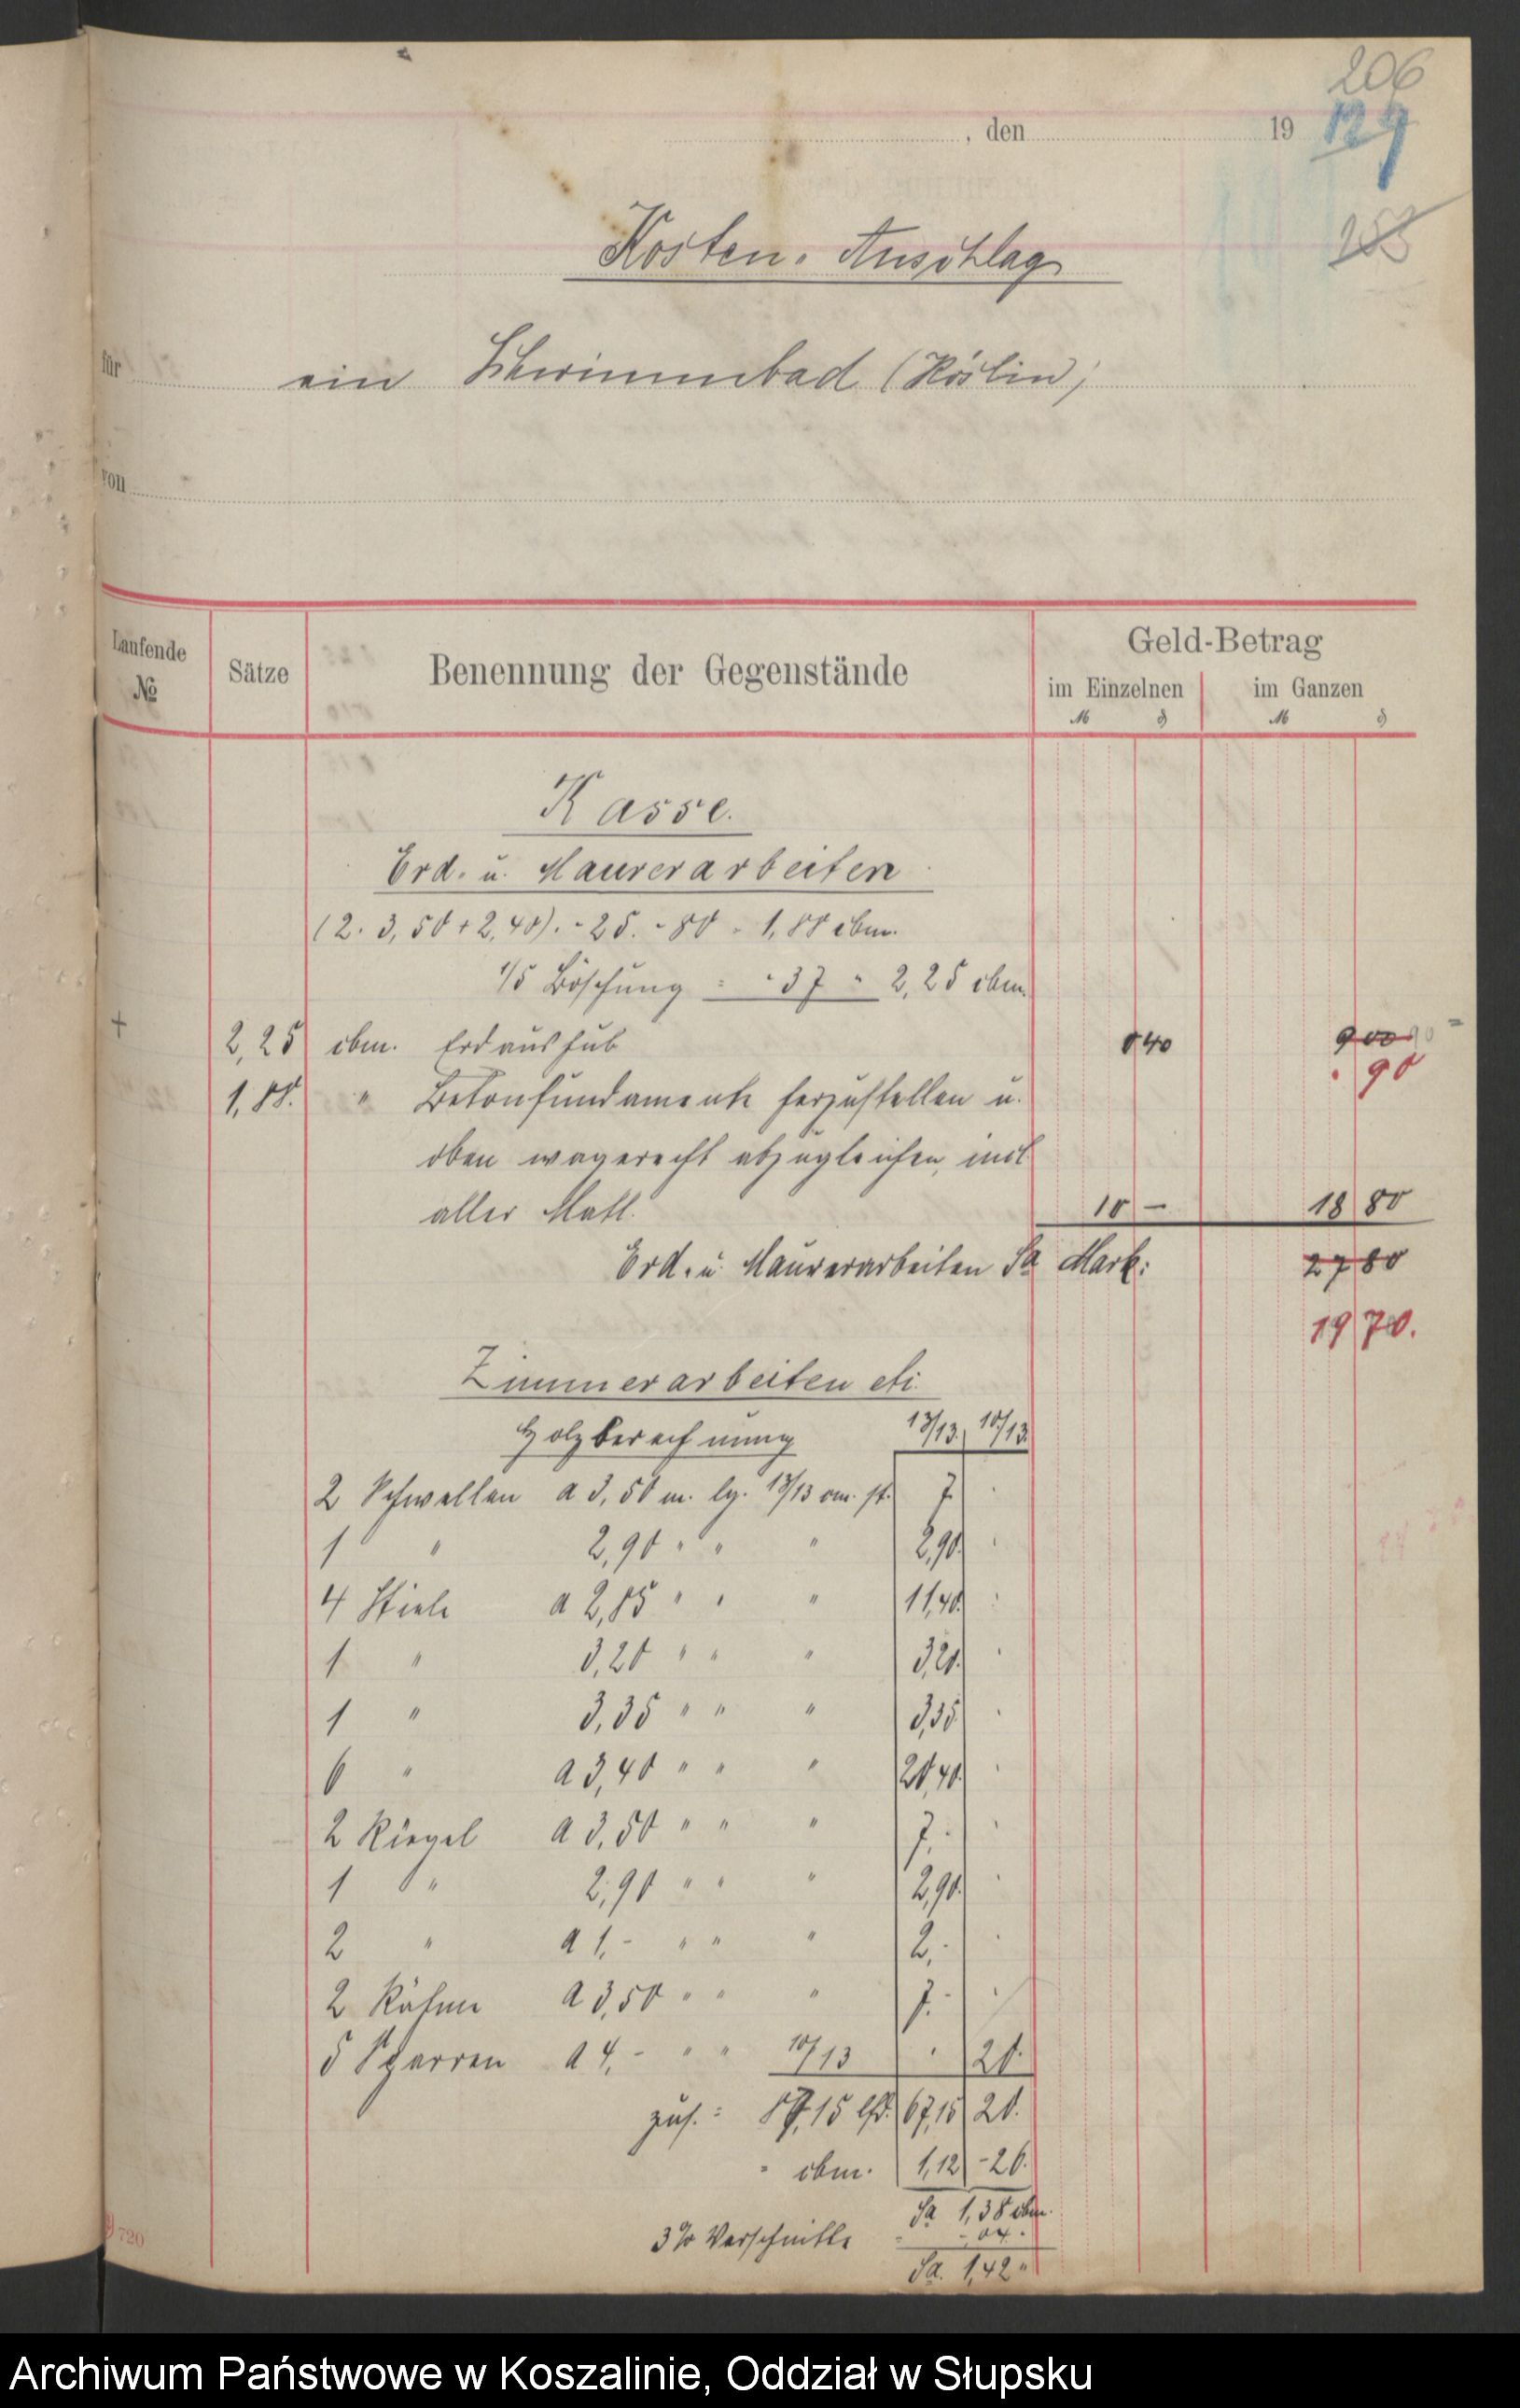 206
, den 19
129
253
Kosten-Anschlag
für ein Schwimmbad (Köslin)
von
Laufende
№
Sätze
Benennung der Gegenstände
Geld-Betrag
im Einzelnen
im Ganzen
Kasse.
Erd- u. Maurerarbeiten
(2 · 3,50 + 2,40) · -25 · -80 = 1,88 cbm.
1/5 Böschung = -37 = 2,25 cbm
2,25 cbm. Erdaushub 40 9 00
90
1,88. " Betonfundamente herzustellen u.
oben wagerecht abzugleichen, mit
aller Matl. 10 — 18 80
Erd- u. Maurerarbeiten Sa Mark: 27 80
19 70.
Zimmerarbeiten etc.
Holzberechnung 13/13. 10/13.
2 Schwellen a 3,50 m. lg. 13/13 cm. st. 7.
1 " 2,90 " " " 2,90
4 Stiele a 2,85 " " " 11,40
1 " 3,20 " " " 3,20
1 " 3,35 " " " 3,35
6 " a 3,40 " " " 20,40
2 Riegel a 3,50 " " " 7.-
1 " 2,90 " " " 2,90
2 " a 1.- " " " 2.-
2 Rähme a 3,50 " " " 7.-
5 Sparren a 4.- " " 10/13 20.
zus.: 87,15 lfd. 67,15 20.
" cbm. 1,12 -26.
Sa 1,38 cbm.
3% Verschnitte -04.
Sa. 1,42 "
720
Archiwum Państwowe w Koszalinie, Oddział w Słupsku